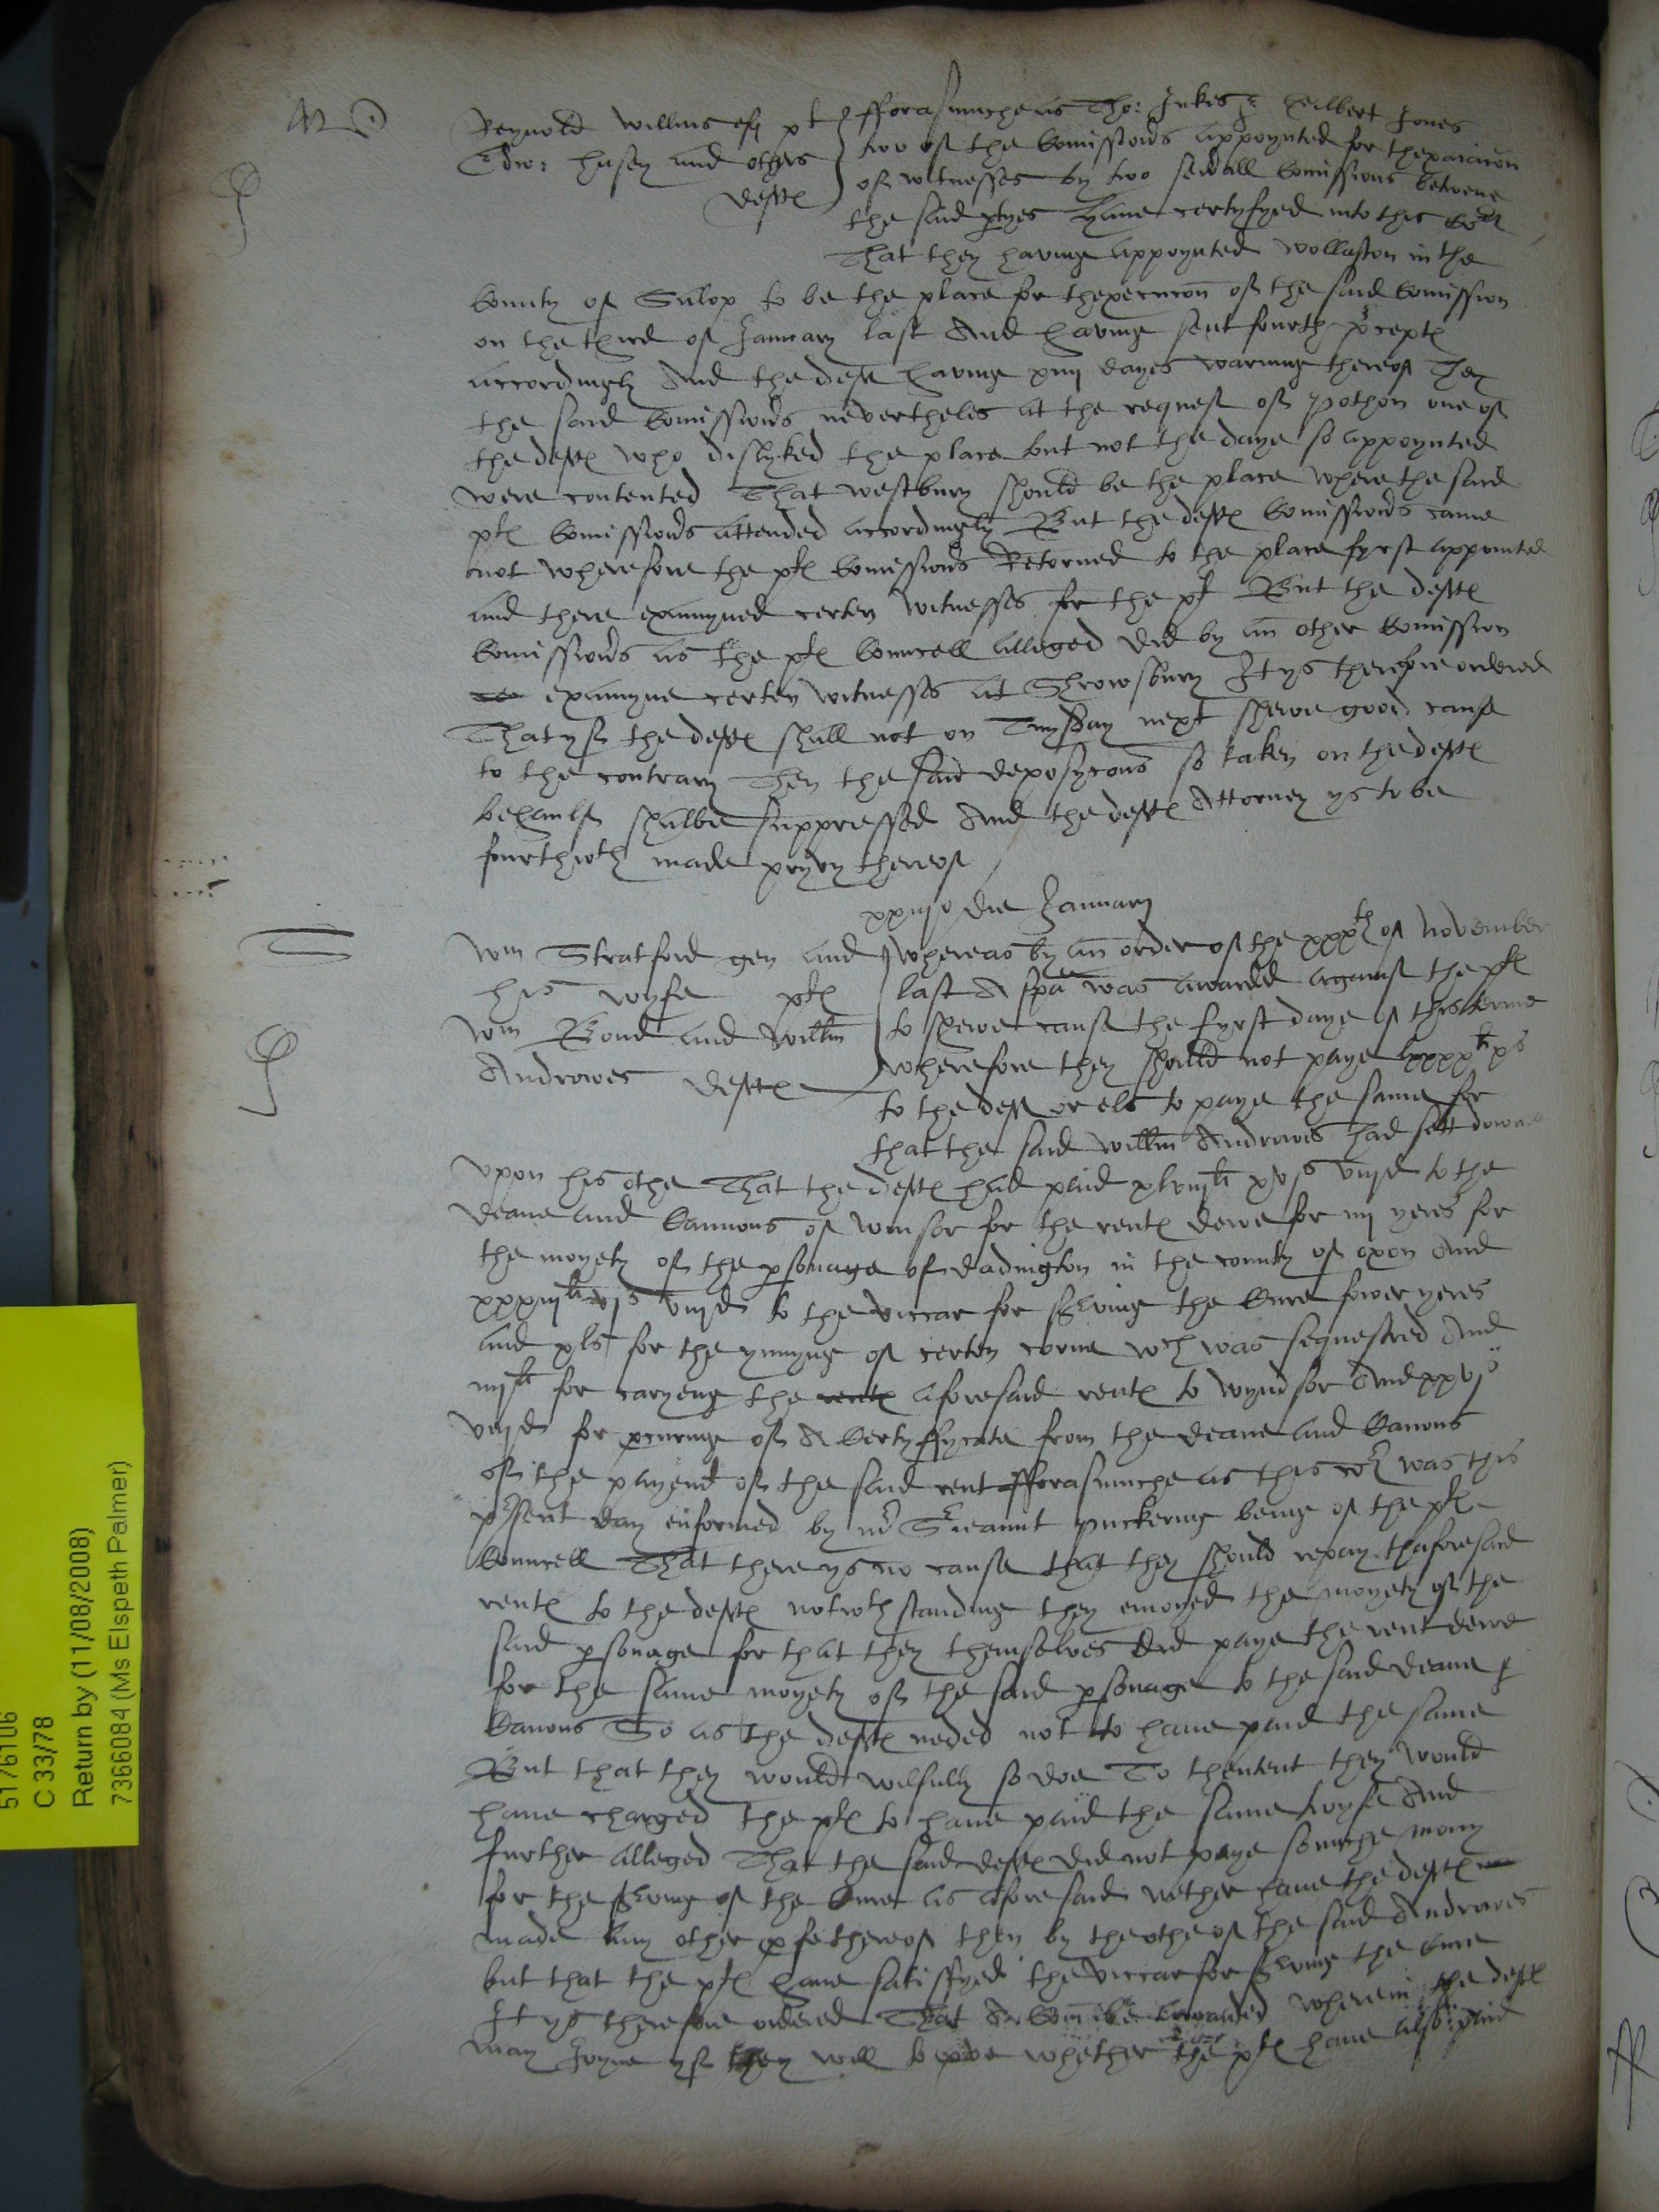 Reynold Willms esq plt
Edw: Husey and others
deftes
fforasmuche as Tho: Jukes & Gilbert Jones
two of the Comissiors appoynted for thexaiacon
of witnesses by two seuall Comissions betwene
the said ptyes haue certyfyed into this Cort
That they having appoynted wollaston in the
County of Salop to be the place for thexecucon of the said Comission
on the third of January last And having sent fourth pcepts
accordingly And the deft having xiiij dayes warning thereof They
the said Comissiors nevertheles at the request of one of
the deftes who dislyked the place but not the daye so appoynted
were contented That westbury should be the place where the said
pltes Comissiors attended accordingly But the deftes Comissiors came
not wherefore the pltes Comissiors Retorned to the place fyrst appointed
and there examyned certen witnesses for the plt But the deftes
Comissiors as the pltes Councell alleged did by an other Comission
examyne certen witnesses at Shrowsbury It ys therefore ordered
That yf the deftes shall not on Tuysday next shewe good cause
to the contrary Then the said deposycons so taken on the deftes
behaulf shalbe suppressed And the deftes Attorney ys to be
fourthwth made pryvy thereof
xxiijo die January
Wm Stratford gen and
his wyfe pltes
Wm Bond and Willm
Androwes deftes
Whereas by an order of the xxxth of November
last A spa was awarded against the pltes
to shewe cause the fyrst daye of this terme
wherefore they should not paye lxxxxli xs
to the deft or els to paye the same for
that the said Willm Androwes had sett downe
vpon his othe That the deftes had paid xlviijli xvjs viijd to the
Deane and Cannons of Winsor for the rents dewe for iiij yeres for
the moyety of the psonage of Dadington in the county of oxon And
xxxiijli vjs viijd to the Viccar for sving the Cure fower yeres
and xls for the ynnyng of certen corne wch was sequestred And
iiijli for caryeng the rents aforesaid rents to Wyndsor And xxvjs
viijd for pcuring of A Certyffycate from the Deane and Canons
of the payent of the said rent fforasmuche as this Cort was this
psent day enformed by mr Sreaunt Puckering being of the pltes
Councell That there ys no cause that they should repay thaforesaid
rents to the deftes notwthstanding they enioyed the moyety of the
said psonage for that they themselves did paye the rent dewe
for the same moyety of the said psonage to the said Deane &
Canons So as the deftes neded not to haue paid the same
But that they would wilfully so doe To thentent they would
haue charged the pltes to haue paid the same twyse And
further alleged That the said deftes did not paye somuche mony
for the sving of the Cure as aforesaid nether haue the deftes
made any other pfe thereof then by the othe of the said Androwes
but that the pltes haue satisfyed the Viccar for sving the Cure
It ys therefore ordered That A Comi be awarded wherein the deftes
may Joyne yf they will to whether the pltes haue also paid
5176106
C 33/78
Return by (11/08/2008)
7366084 (Ms Elspeth Palmer)